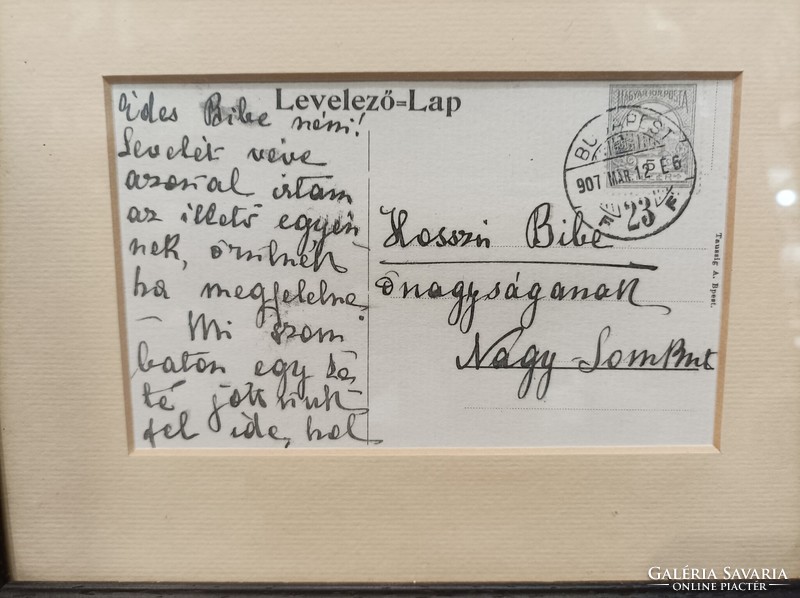 Levelező=Lap
Édes Bibe néni!
Levelét véve
azonnal irtam
az illető egyén
nek, örülnék
ha megfelelne.
– Mi szom
baton egy
té jöttünk
fel ide, hol
MAGYAR KIR. POSTA
BUDAPEST
907 MÁR. 12 E6
23
F F
Hosszú Bibe
őnagyságának
Nagy-Somkut
Taussig A. Bpest.
GALÉRIA SAVARIA
ONLINE PIACTÉR